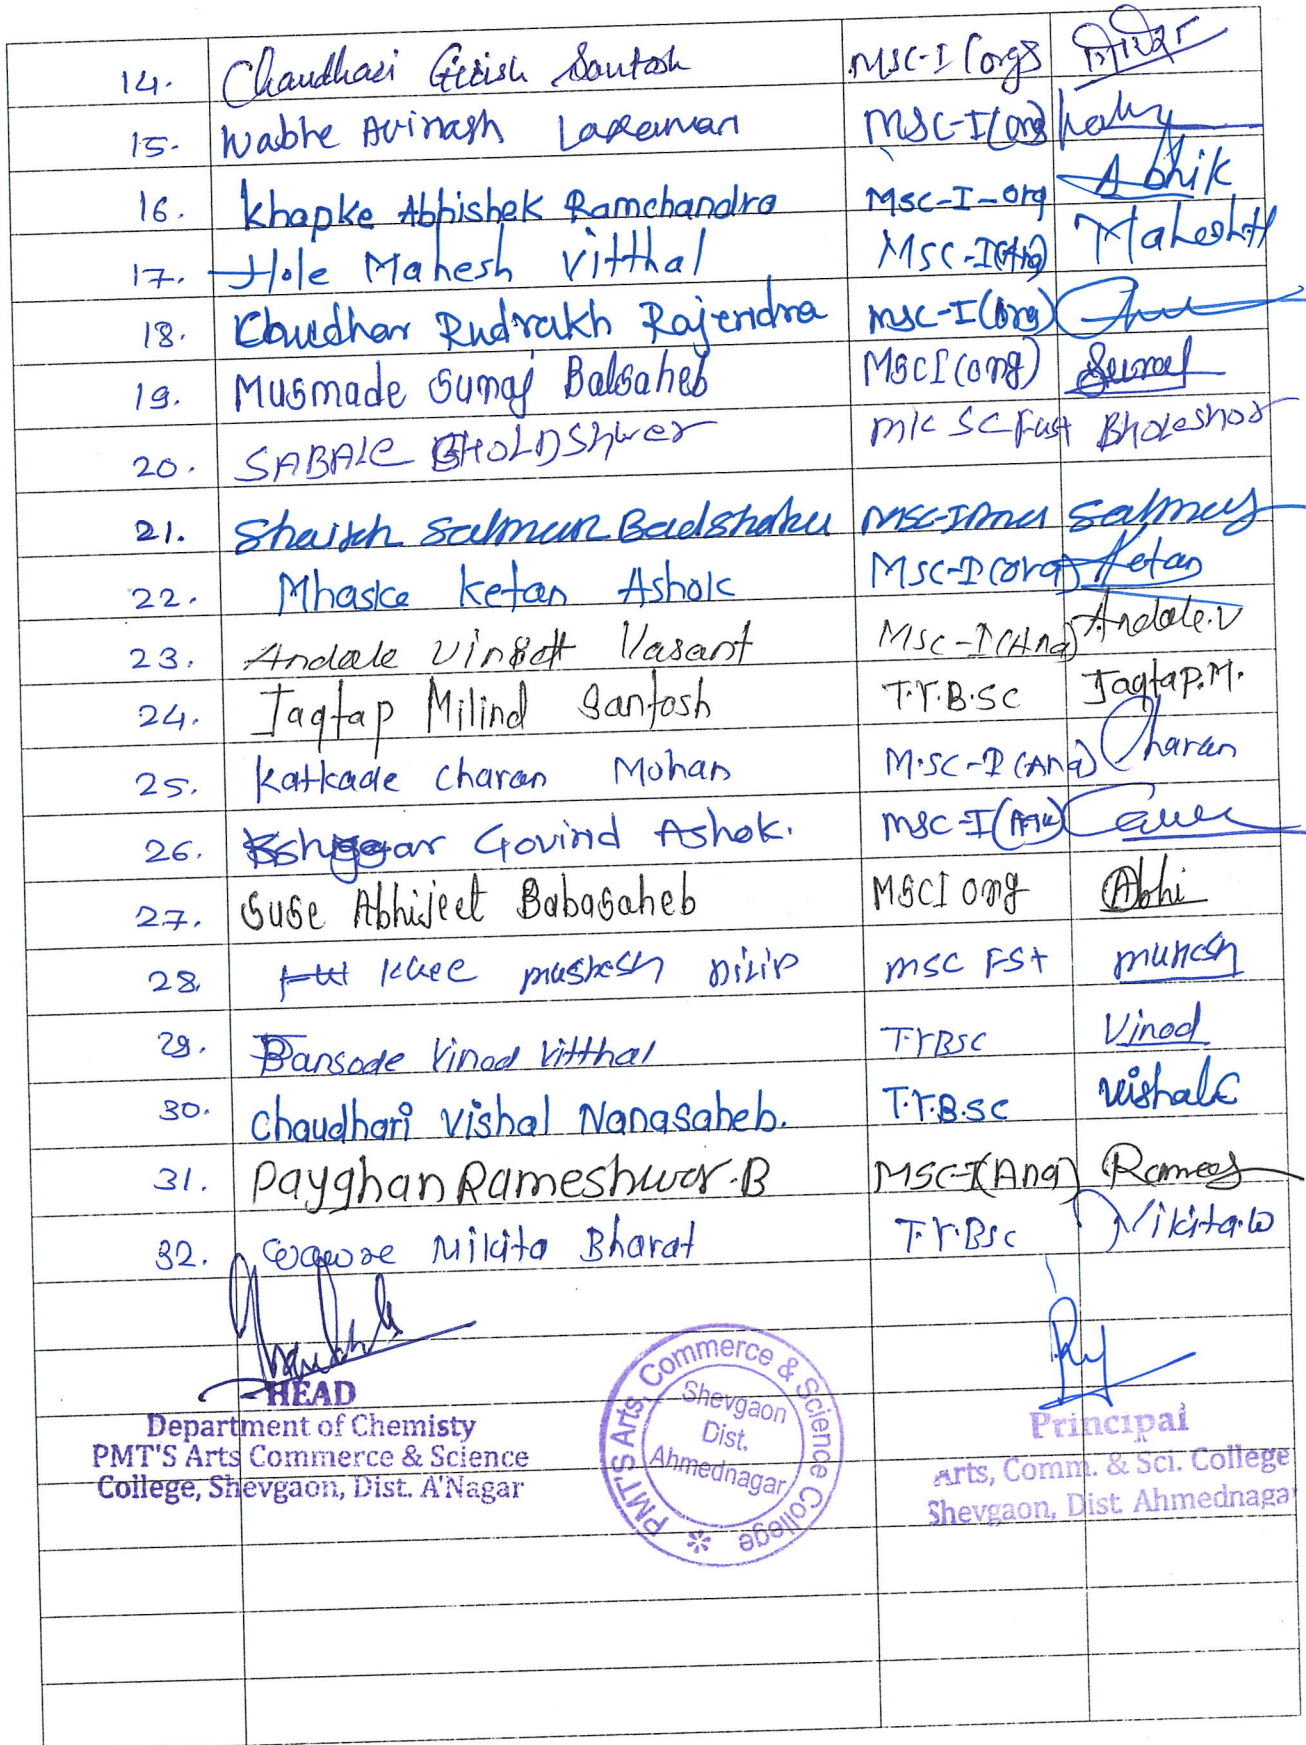 14. Chaudhari Girish Santosh MSC-I (org)
15. Wabhe Avinash Laxaman MSC-I (org)
16. Khapke Abhishek Ramchandra MSC-I-org Abhik
17. Hole Mahesh Vitthal MSC-I(Ana) Mahesh.H
18. Rudrakh Rajendra MSC-I(org)
19. Musmade Suraj Balsaheb MSCI (org) Suraj
20. SABALE BHOLDShwer Bholeshor
21. Shaikh Salman Badshaha MSC-I Salman
22. Mhaske Ketan Ashok MSC-I (org) Ketan
23. Andale Vasant MSC-I (Ana) Andale.V
24. Jagtap Milind Santosh T.Y.B.SC Jagtap.M.
25. Katkade Charan Mohan M.SC-I (Ana) Charan
26. Govind Ashok. MSC-I (Ana)
27. Suse Abhijeet Babasaheb MSCI org Abhi
28. msc FST
29. Bansode Vinod Vitthal T.Y.BSC Vinod
30. Chaudhari Vishal Nanasaheb. T.Y.B.SC Vishal C
31. Payghan Rameshwar.B MSC-I(Ana)
32. Nikita Bharat T.Y.BSC Nikita.W
HEAD
Department of Chemisty
PMT'S Arts Commerce & Science
College, Shevgaon, Dist. A'Nagar
PMT'S Arts, Commerce & Science College *
Shevgaon
Dist.
Ahmednagar
Principal
Arts, Comm. & Sci. College
Shevgaon, Dist Ahmednaga